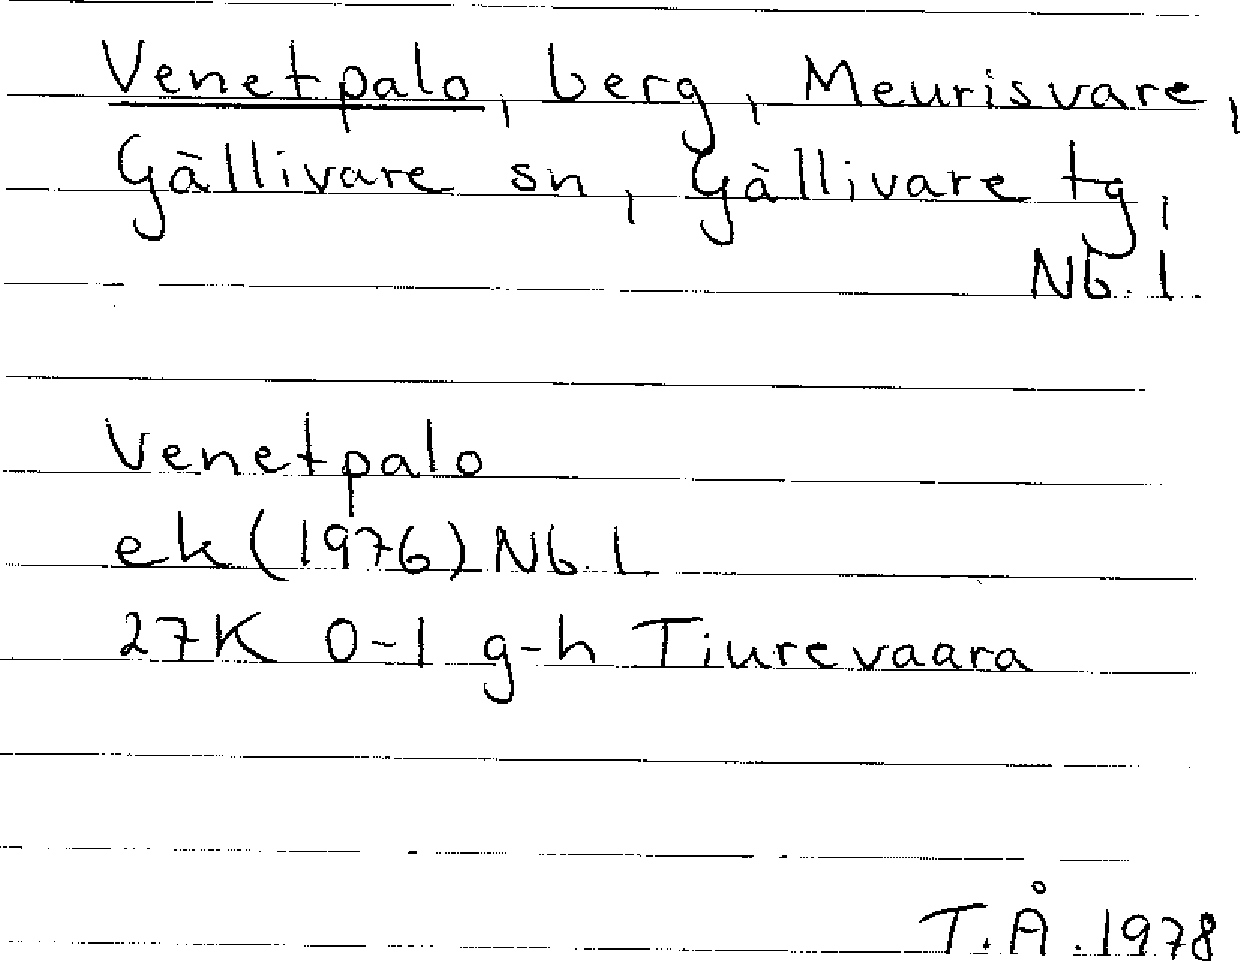 Venetpalo, berg, Meurisvare,
Gällivare sn, Gällivare tg,
Nb. l.
Venetpalo
ek (1976) Nb. L
27K 0-1 g-h Tiurevaara
T.Å. 1978